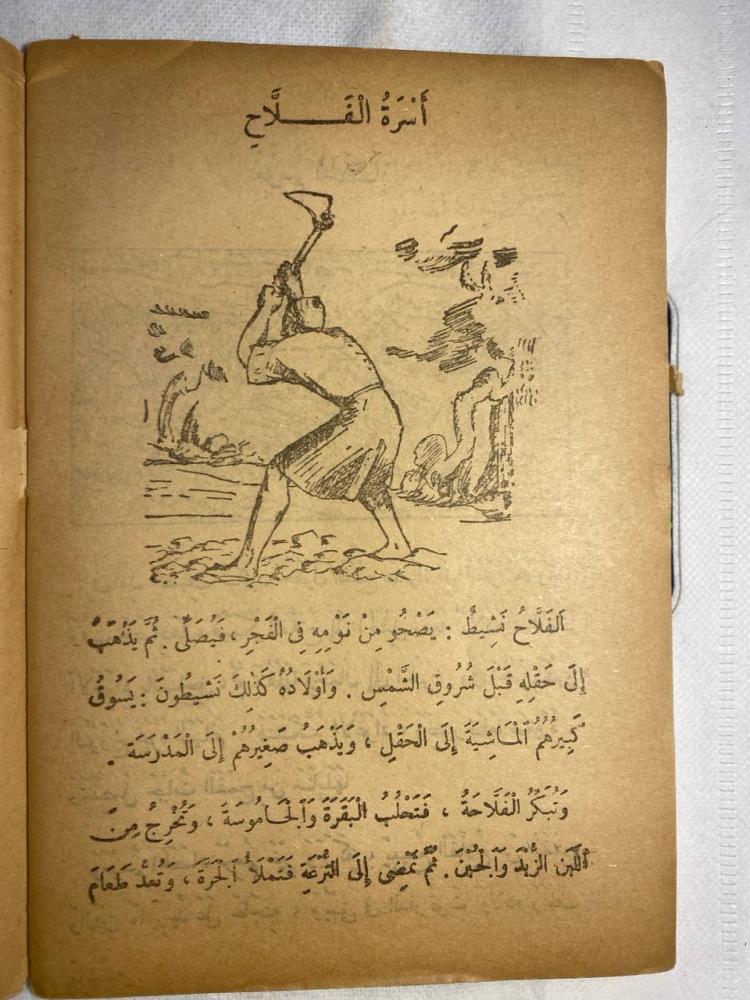 أُسْرَةُ الْفَـــلَّاحِ
اَلْفَلَّاحُ نَشِيطٌ : يَصْحُو مِنْ نَوْمِهِ فِى الْفَجْرِ ، فَيُصَلِّى . ثُمَّ يَذْهَبُ
إِلَى حَقْلِهِ قَبْلَ شُرُوقِ الشَّمْسِ . وَأَوْلَادُهُ كَذٰلِكَ نَشِيطُونَ : يَسُوقُ
كَبِيرُهُمُ الْمَاشِيَةَ إِلَى الْحَقْلِ ، وَيَذْهَبُ صَغِيرُهُمْ إِلَى الْمَدْرَسَةِ .
وَتُبَكِّرُ الْفَلَّاحَةُ ، فَتَحْلُبُ الْبَقَرَةَ وَالْجَامُوسَةَ ، وَتُخْرِجُ مِنَ
اللَّبَنِ الزُّبْدَ وَالْجُبْنَ . ثُمَّ تَمْضِى إِلَى التُّرْعَةِ فَتَمْلَأُ الْجَرَّةَ ، وَتُعِدُّ طَعَامَ